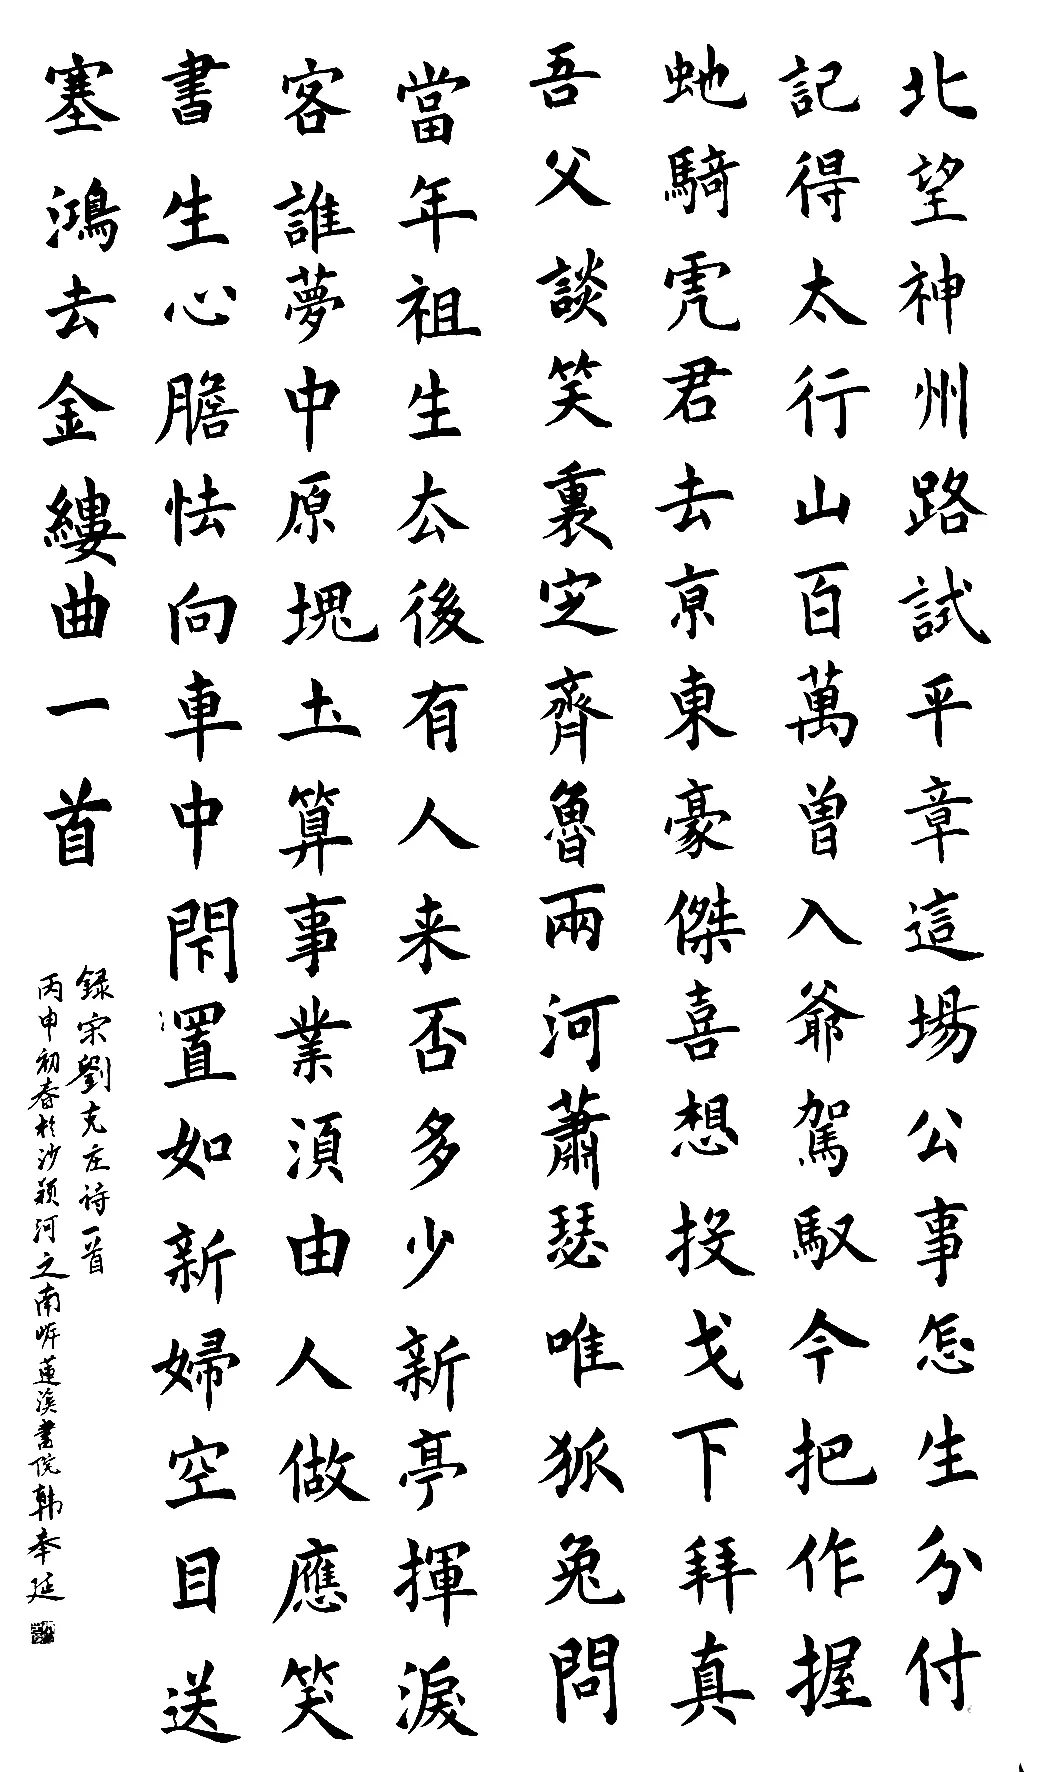 北望神州路試平章這場公事怎生分付
記得太行山百萬曾入爺駕馭今把作握
虵騎虎君去亰東豪傑喜想投戈下拜真
吾父談笑裏定齊魯兩河蕭瑟唯狐兔問
當年祖生去後有人来否多少新亭揮淚
客誰夢中原塊土算事業須由人做應笑
書生心膽怯向車中閇置如新婦空目送
塞鴻去金縷曲一首
録宋劉克庄诗一首
丙申初春於沙颍河之南岸蓮溪書院韩奉延